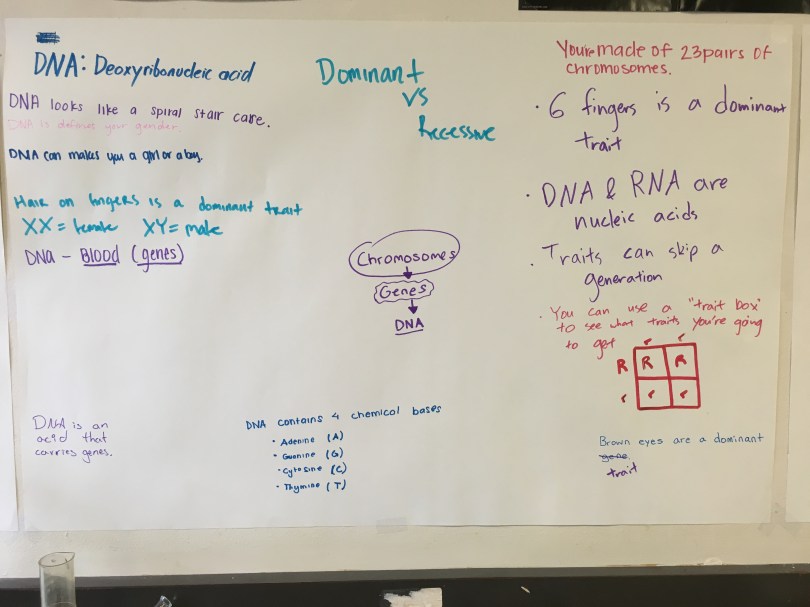 DNA: Deoxyribonucleic acid
DNA looks like a spiral stair care.
DNA is defines your gender
DNA can makes you a girl or a boy.
Hair on fingers is a dominant trait
XX = female XY = male
DNA - Blood (genes)
DNA is an
acid that
carries genes.
Dominant
vs
Recessive
Chromosomes
Genes
DNA
DNA contains 4 chemical bases
• Adenine (A)
• Guanine (G)
• Cytosine (C)
• Thymine (T)
You're made of 23 pairs of
chromosomes.
• 6 fingers is a dominant
trait
• DNA & RNA are
nucleic acids
• Traits can skip a
generation
• You can use a "trait box"
to see what traits you're going
to get
r r
R R R
r r r
Brown eyes are a dominant
gene
trait